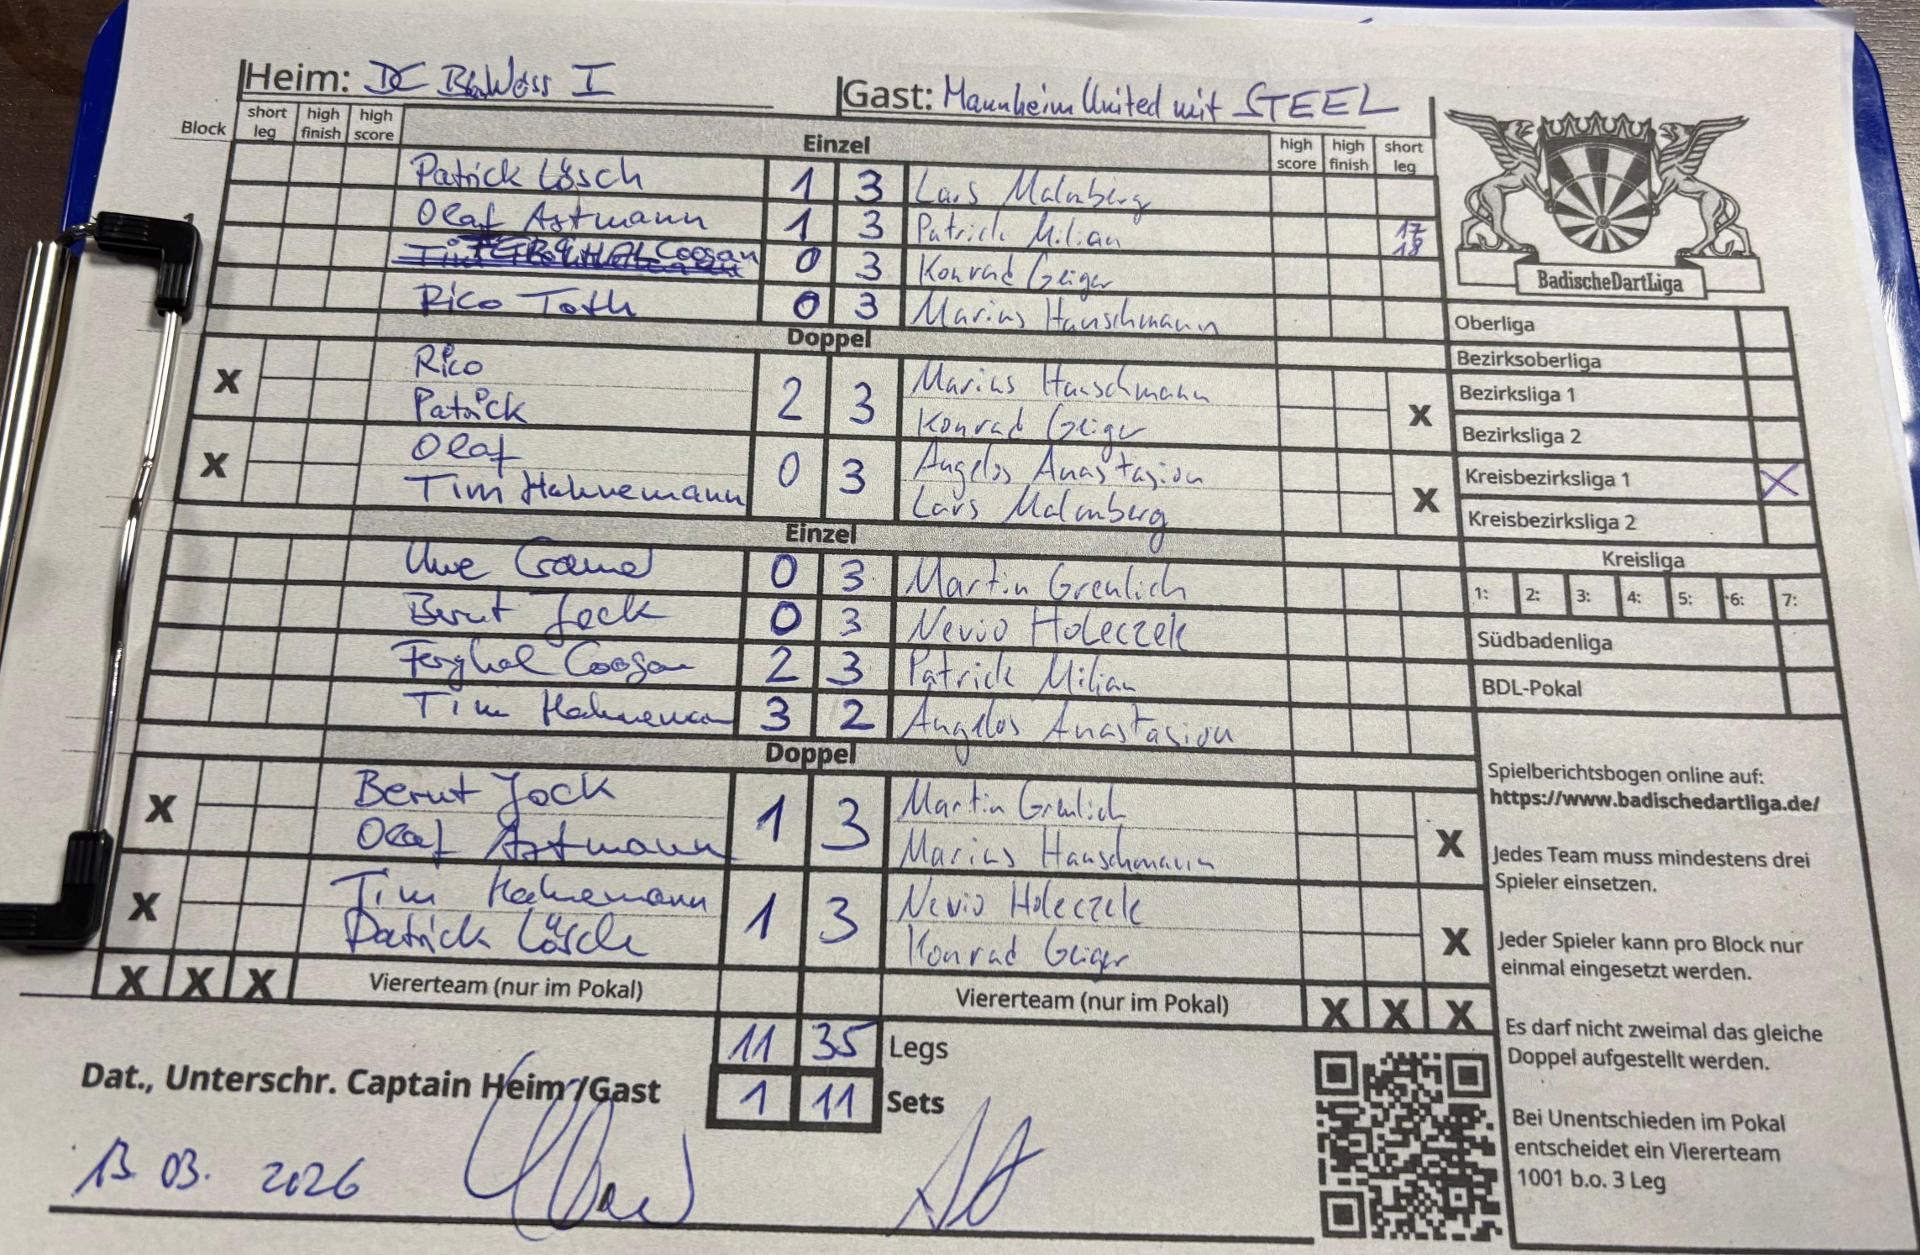 Heim: DC BlauWeiss I
Gast: Mannheim United mit STEEL
Block short leg high finish high score Einzel high score high finish short leg
1
Patrick Lösch 1 3 Lars Malmberg
Olaf Astmann 1 3 Patrick Milian 17 18
FERGHAL Coogan 0 3 Konrad Geiger
Rico Toth 0 3 Marius Hanschmann
Doppel
X Rico 2 3 Marius Hanschmann X
Patrick Konrad Geiger
X Olaf 0 3 Angelos Anastasiou X
Tim Hahnemann Lars Malmberg
Einzel
Uwe 0 3 Martin Greulich
Bernt Jock 0 3 Nevio Holeczek
Ferghal Coogan 2 3 Patrick Milian
Tim Hahnemann 3 2 Angelos Anastasiou
Doppel
X Bernt Jock 1 3 Martin Greulich X
Olaf Astmann Marius Hanschmann
X Tim Hahnemann 1 3 Nevio Holeczek X
Patrick Lösch Konrad Geiger
X X X Viererteam (nur im Pokal) Viererteam (nur im Pokal) X X X
11 35 Legs
1 11 Sets
Dat., Unterschr. Captain Heim/Gast
13.03. 2026
BadischeDartLiga
Oberliga
Bezirksoberliga
Bezirksliga 1
Bezirksliga 2
Kreisbezirksliga 1 X
Kreisbezirksliga 2
Kreisliga
1: 2: 3: 4: 5: 6: 7:
Südbadenliga
BDL-Pokal
Spielberichtsbogen online auf:
https://www.badischedartliga.de/
Jedes Team muss mindestens drei
Spieler einsetzen.
Jeder Spieler kann pro Block nur
einmal eingesetzt werden.
Es darf nicht zweimal das gleiche
Doppel aufgestellt werden.
Bei Unentschieden im Pokal
entscheidet ein Viererteam
1001 b.o. 3 Leg